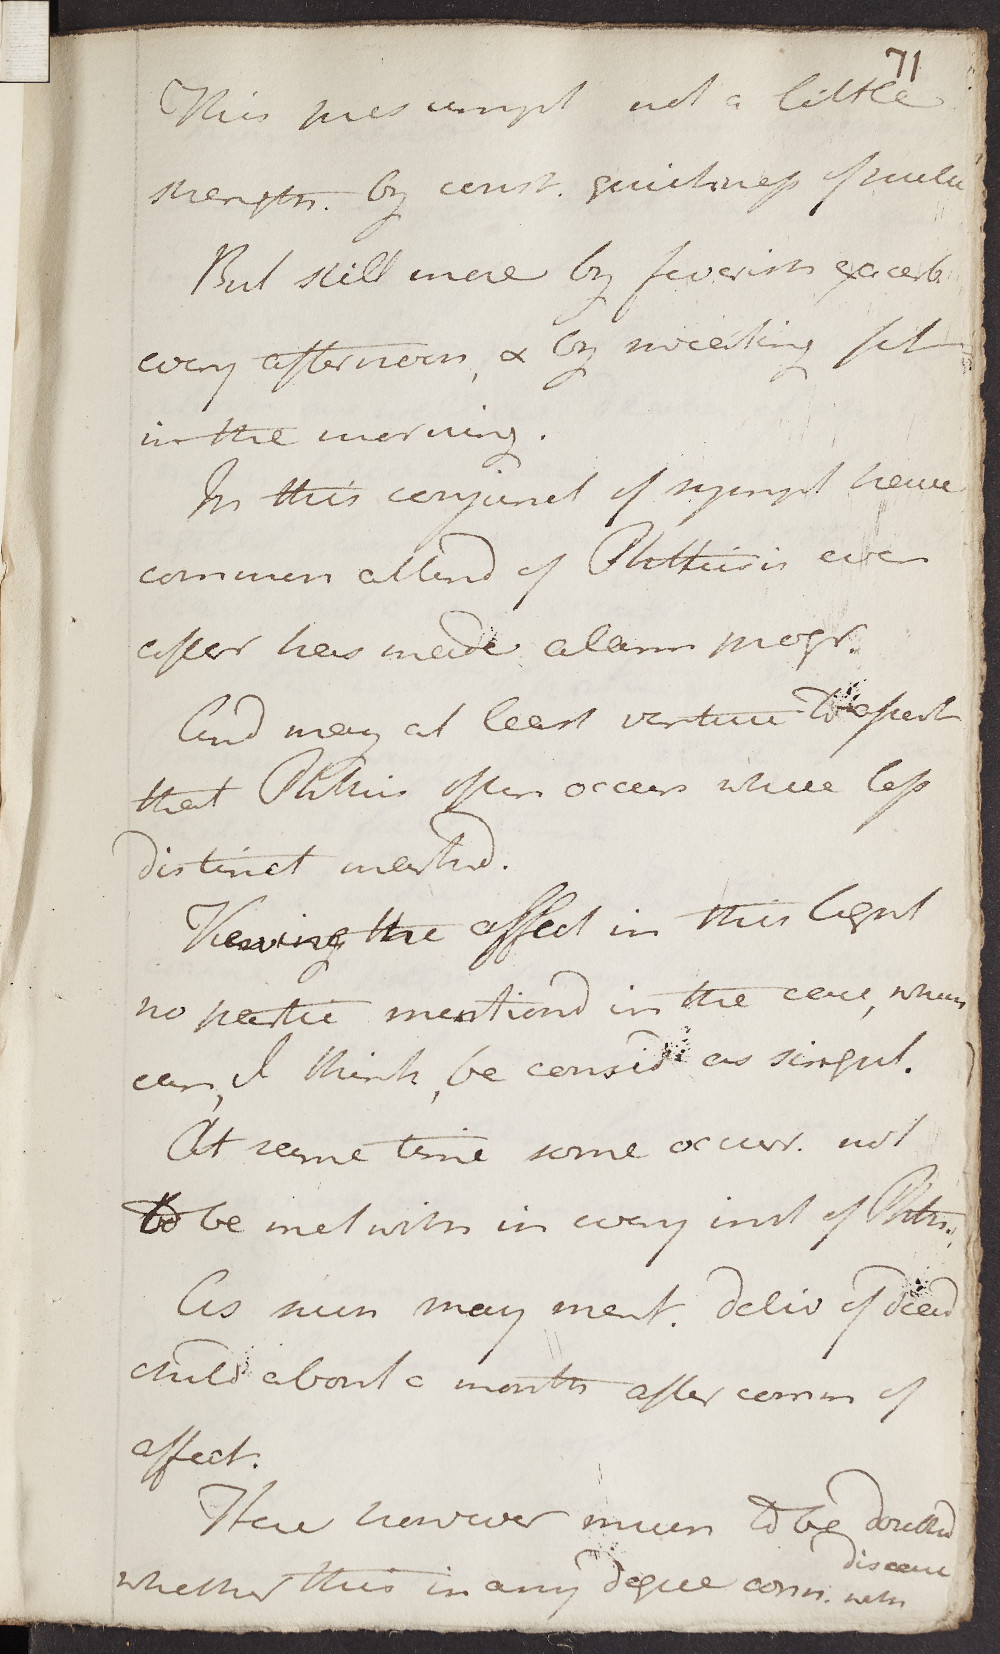 71
This presumpt not a little
strength. by const. quickness of pulse
But still more by feverish exacerb
every afternoon, & by sweating
in the morning.
In this conjunct of sympt have
common attend of Phthisis even
after has made alarm progr.
And may at least venture to assert
that Phthisis often occurs where less
distinct markd.
Viewing the affect in this light
no partic mentiond in the case, when
can, I think, be consid as singul.
At same time some occurr. not
to be met with in every inst of Phthis.
As such may ment. deliv of dead
child about a month after comm of
affect.
Here however much to be doubted
whether this in any degree conn. with
disease